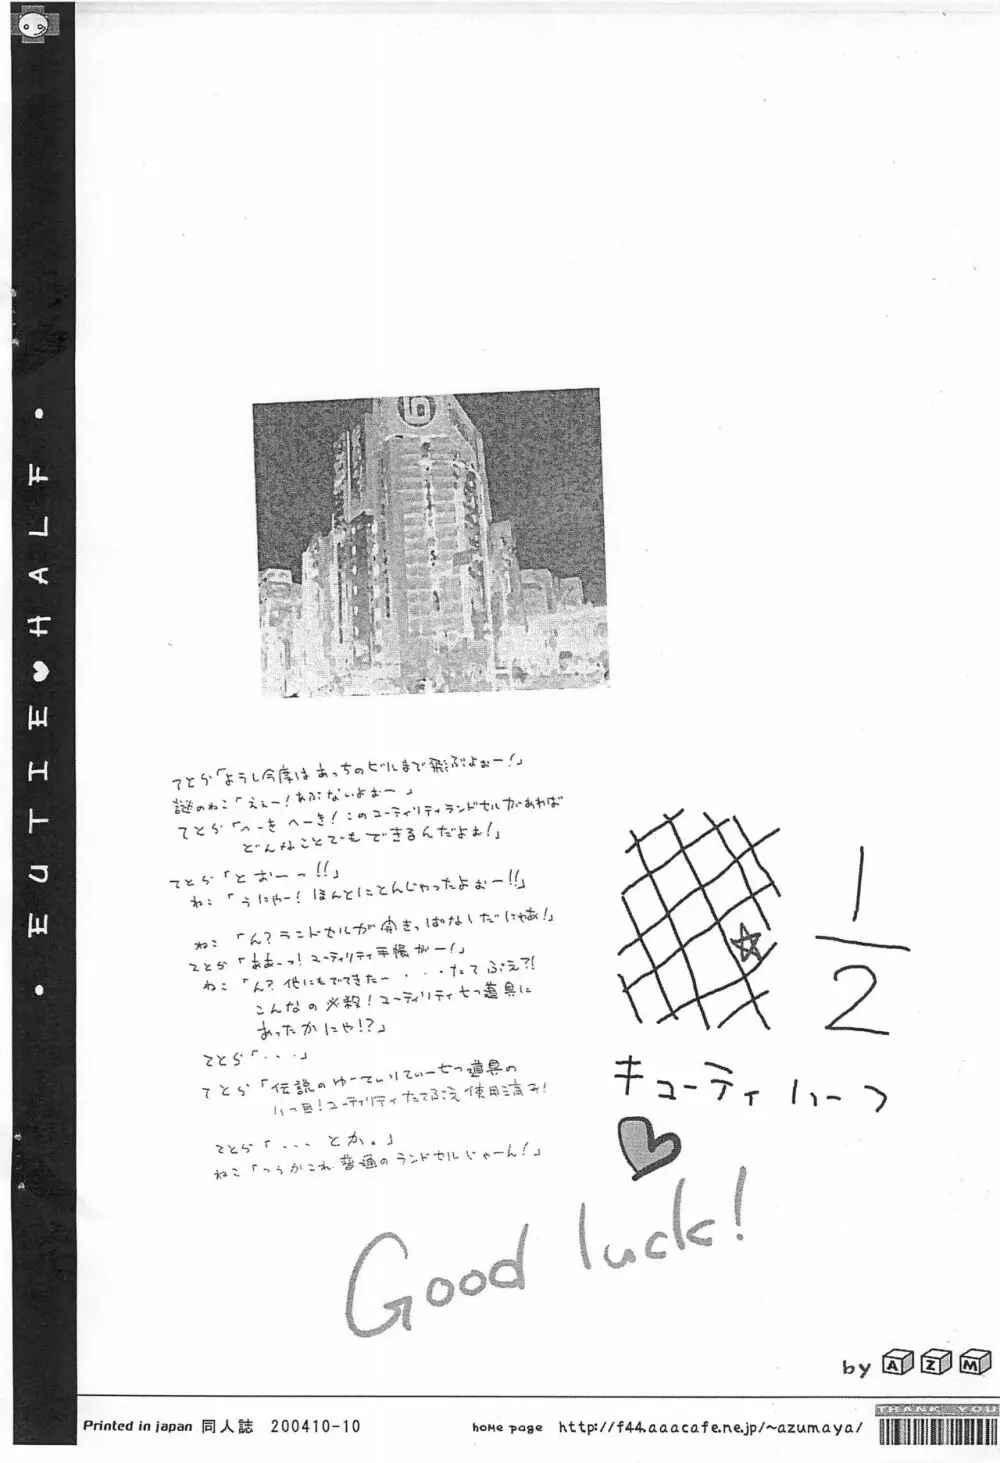 EUTIE♥HALF
てとら「ようし今度はあっちのビルまで飛ぶよぉー!」
謎のねこ「ええー!あぶないよぉー」
てとら「へーき へーき!このユーティリティランドセルがあれば
どんなことでもできるんだよぉ!」
てとら「とおーっ!!」
ねこ「うにゃー!ほんとにとんじゃったよぉー!!」
ねこ「ん?ランドセルが開きっぱなしだにゃあ!」
てとら「ああーっ!ユーティリティ手帳がー!」
ねこ「ん?他にもでてきたー・・・たてぶえ?!
こんなの必殺!ユーティリティ七つ道具に
あったかにゃ!?」
てとら「・・・」
てとら「伝説のゆーてぃりてぃー七つ道具の
八つ目!ユーティリティたてぶえ使用済み!
てとら「... とか。」
ねこ「つうかこれ普通のランドセルじゃーん!」
1/2
キューティハーフ
Good luck!
by AZM
Printed in japan 同人誌 200410-10
home page http://f44.aaacafe.ne.jp/~azumaya/
THANK YOU